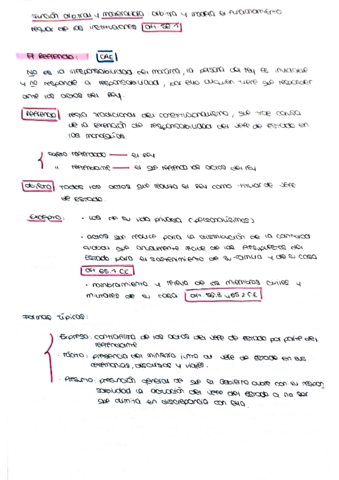 función arbitral y moderadora arbitra y modera el funcionamiento
regular de las instituciones art 56.1
El Refrendo: CAE
No es la irresponsabilidad del monarca, la persona del Rey es inviolable
y no responde a responsabilidad, por ello alguien tiene que responder
ante los actos del Rey.
Refrendo regla tradicional del constitucionalismo, que trae causa
de la exención de responsabilidad del Jefe de Estado en
las monarquías.
Sujeto refrendado — el Rey
" refrendante — el que refrenda los actos del Rey
objeto todos los actos que realiza el Rey como titular de Jefe
de Estado.
Excepto: • los de su vida privada (personalísimos)
• actos que realice para la distribución de la cantidad
global que anualmente recibe de los presupuestos del
Estado para el sostenimiento de su familia y de su casa
art 65.1 CE
• nombramiento y relevo de los miembros civiles y
militares de su casa art 56.3 y 65.2 CE
Formas típicas:
Expreso: contrafirma de los actos del Jefe de Estado por parte del
refrendante
• Tácito: presencia del ministro junto al Jefe de Estado en sus
ceremonias, discursos y viajes.
• Presunto: presunción general de que el Gobierno cubre con su respon-
sabilidad la actuación del Jefe del Estado a no ser
que dimita en discrepancia con ella.